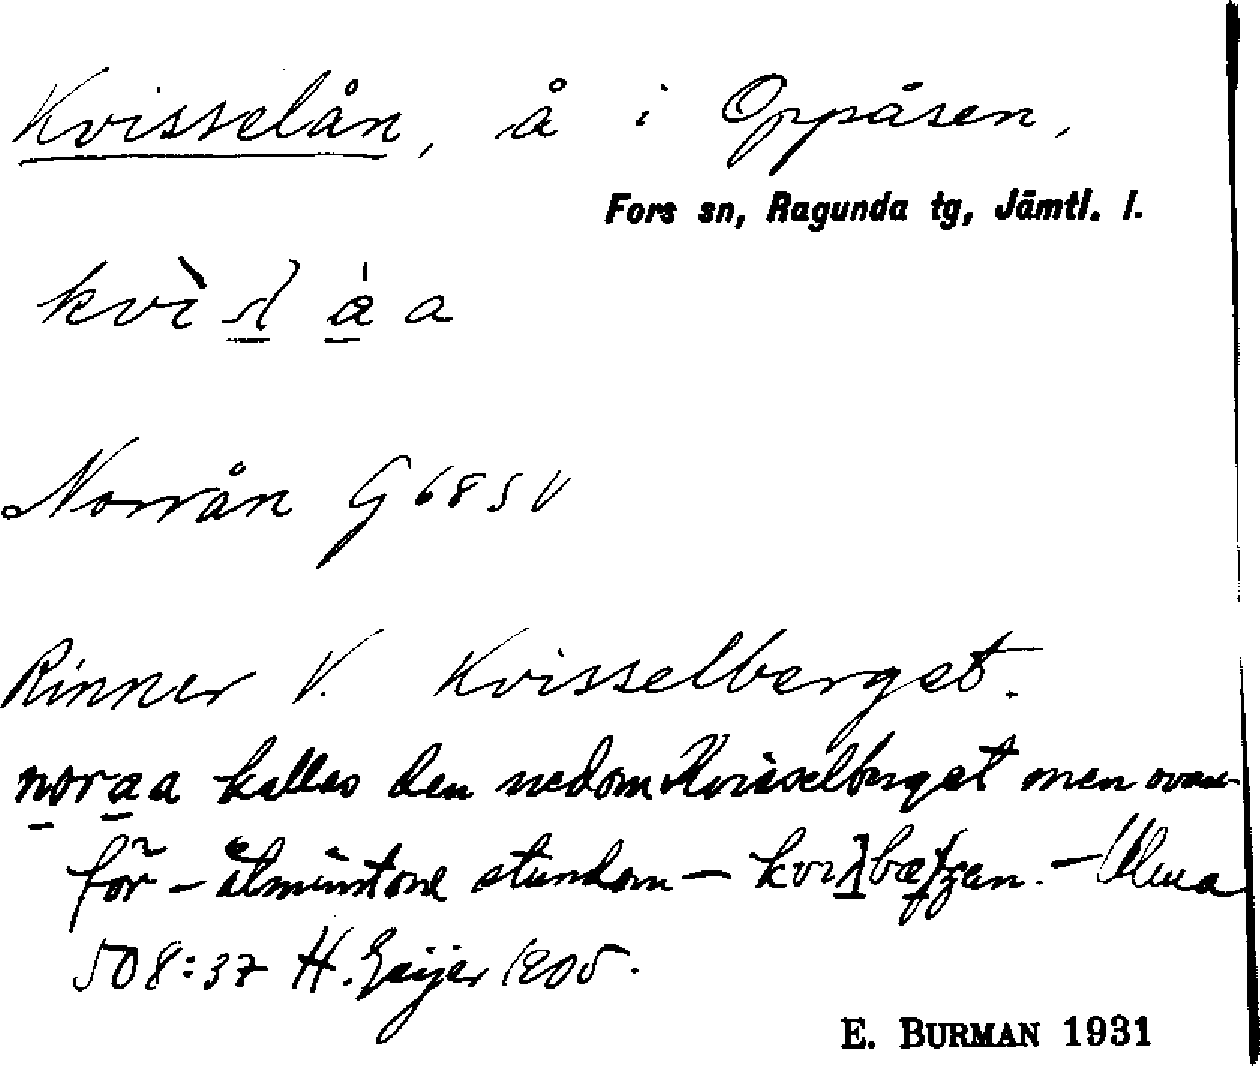 Kvisselån, å i Oppåsen,
Fors sn, Ragunda tg, Jämtl. l.
Norrån G 68 SV
Rinner V. Kvisselberget.
noraa kallas den nedom Kvisselberget men ovan-
för - åtminstone stundom -
508:37 H. Geijer 1905.
E. BURMAN 1931